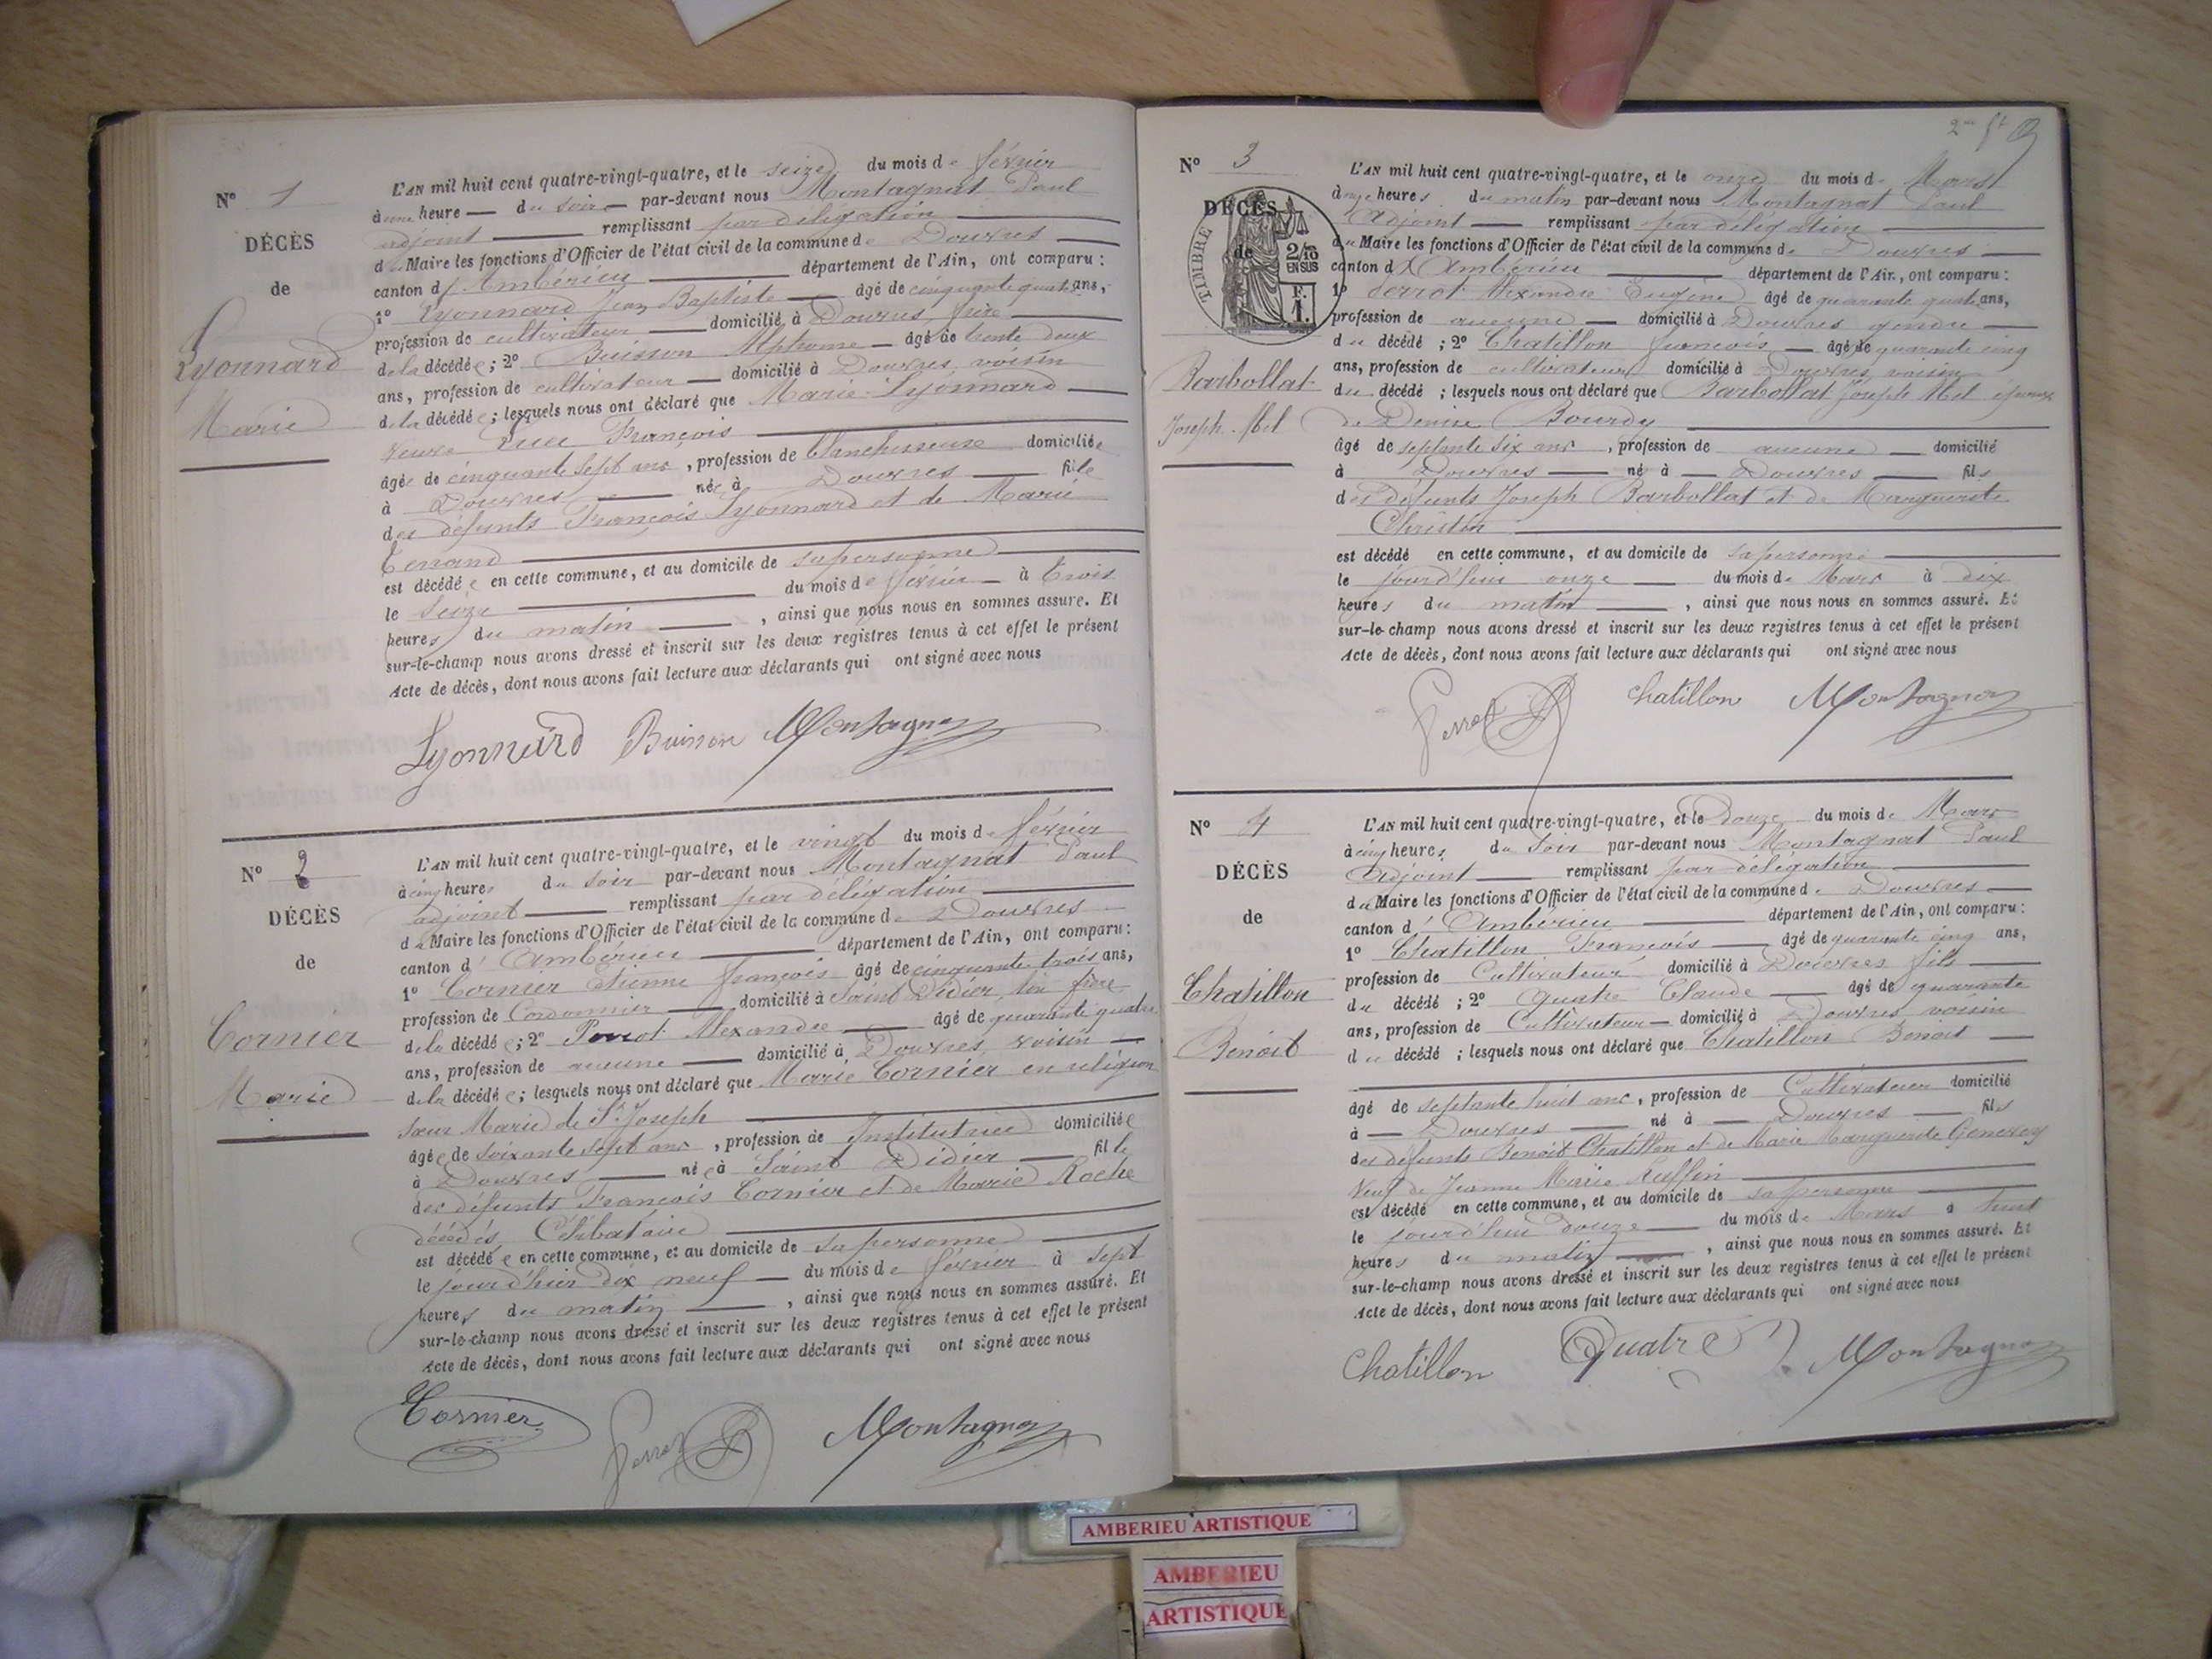 Nº 1
DÉCÈS
de
Lyonnard
Marie
L'AN mil huit cent quatre-vingt-quatre, et le seize du mois de février
à une heure — du soir — par-devant nous Montagnat Paul
adjoint — remplissant par délégation —
du Maire les fonctions d'Officier de l'état civil de la commune de Douvres —
canton d'Ambérieu — département de l'Ain, ont comparu :
1º Lyonnard Jean Baptiste — âgé de cinquante quatre ans,
profession de cultivateur — domicilié à Douvres, frère —
de la décédée ; 2º Buisson Alphonse — âgé de trente deux
ans, profession de cultivateur — domicilié à Douvres, voisin
de la décédée ; lesquels nous ont déclaré que Marie Lyonnard —
veuve François —
âgée de cinquante sept ans, profession de blanchisseuse domiciliée
à Douvres — née à Douvres — fille
des défunts François Lyonnard et de Marie
Tenand —
est décédée en cette commune, et au domicile de sa personne —
le seize — du mois de février — à trois
heures du matin —, ainsi que nous nous en sommes assuré. Et
sur-le-champ nous avons dressé et inscrit sur les deux registres tenus à cet effet le présent
Acte de décès, dont nous avons fait lecture aux déclarants qui ont signé avec nous
Lyonnard Buisson Montagnat
Nº 2
DÉCÈS
de
Cornier
Marie
L'AN mil huit cent quatre-vingt-quatre, et le vingt du mois de février
à cinq heures du soir par-devant nous Montagnat Paul
adjoint — remplissant par délégation —
du Maire les fonctions d'Officier de l'état civil de la commune de Douvres —
canton d'Ambérieu — département de l'Ain, ont comparu :
1º Cornier Etienne François — âgé de cinquante trois ans,
profession de Cordonnier — domicilié à Saint Didier, frère
de la décédée ; 2º Perrot Alexandre — âgé de quarante quatre
ans, profession de aucune — domicilié à Douvres, voisin —
de la décédée ; lesquels nous ont déclaré que Marie Cornier en religion
sœur Marie de St Joseph —
âgée de soixante sept ans, profession de Institutrice domiciliée
à Douvres — née à Saint Didier — fille
des défunts François Cornier et de Marie Roche
décédés, Célibataire —
est décédée en cette commune, et au domicile de sa personne —
le jour d'hier dix neuf — du mois de février à sept
heures du matin —, ainsi que nous nous en sommes assuré. Et
sur-le-champ nous avons dressé et inscrit sur les deux registres tenus à cet effet le présent
Acte de décès, dont nous avons fait lecture aux déclarants qui ont signé avec nous
Cornier Perrot Montagnat
Nº 3
DÉCÈS
de
TIMBRE
2/10
EN SUS
F.
1.
Barbollat
Joseph Mel
L'AN mil huit cent quatre-vingt-quatre, et le onze du mois de Mars
à onze heures du matin par-devant nous Montagnat Paul
Adjoint — remplissant par délégation —
du Maire les fonctions d'Officier de l'état civil de la commune de Douvres —
canton d'Ambérieu — département de l'Ain, ont comparu :
1º Perrot Alexandre Eugène âgé de quarante quatre ans,
profession de aucune — domicilié à Douvres gendre —
du décédé ; 2º Chatillon François — âgé de quarante cinq
ans, profession de cultivateur domicilié à Douvres, voisin
du décédé ; lesquels nous ont déclaré que Barbollat Joseph Mel époux
de Denise Bourdy —
âgé de septante six ans, profession de aucune — domicilié
à Douvres — né à — Douvres — fils
des défunts Joseph Barbollat et de Marguerite
Christin —
est décédé en cette commune, et au domicile de sa personne —
le jourd'hui onze — du mois de Mars à dix
heures du matin —, ainsi que nous nous en sommes assuré. Et
sur-le-champ nous avons dressé et inscrit sur les deux registres tenus à cet effet le présent
Acte de décès, dont nous avons fait lecture aux déclarants qui ont signé avec nous
Perrot Chatillon Montagnat
Nº 4
DÉCÈS
de
Chatillon
Benoit
L'AN mil huit cent quatre-vingt-quatre, et le Douze du mois de Mars
à cinq heures du soir par-devant nous Montagnat Paul
Adjoint — remplissant par délégation —
du Maire les fonctions d'Officier de l'état civil de la commune de Douvres —
canton d'Ambérieu — département de l'Ain, ont comparu :
1º Chatillon François — âgé de quarante cinq ans,
profession de Cultivateur domicilié à Douvres fils —
du décédé ; 2º Quatre Claude — âgé de quarante
ans, profession de Cultivateur — domicilié à Douvres voisin
du décédé ; lesquels nous ont déclaré que Chatillon Benoit —
âgé de septante huit ans, profession de Cultivateur domicilié
à — Douvres — né à — Douvres — fils
des défunts Benoit Chatillon et de Marie Marguerite Genevey
Veuf de Jeanne Marie Ruffin —
est décédé en cette commune, et au domicile de sa personne —
le jourd'hui douze — du mois de Mars à huit
heures du matin —, ainsi que nous nous en sommes assuré. Et
sur-le-champ nous avons dressé et inscrit sur les deux registres tenus à cet effet le présent
Acte de décès, dont nous avons fait lecture aux déclarants qui ont signé avec nous
Chatillon Quatre Montagnat
AMBERIEU ARTISTIQUE
AMBERIEU
ARTISTIQUE